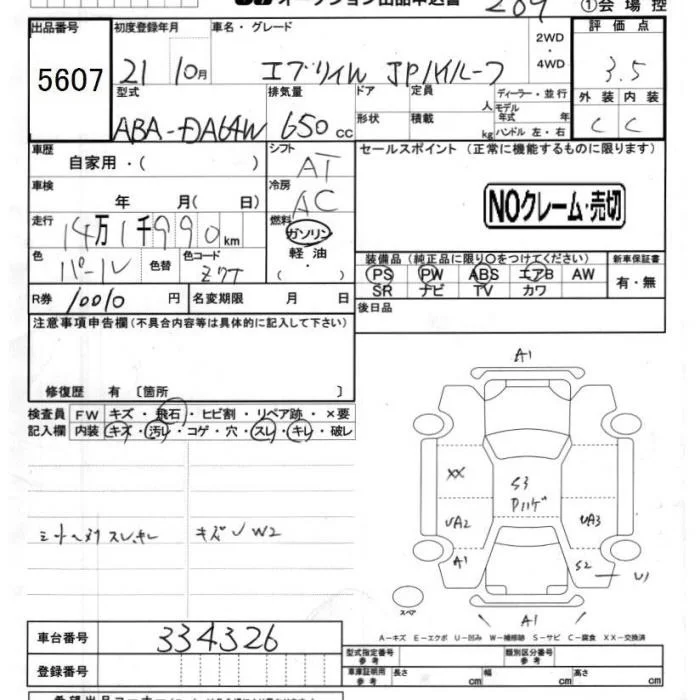 209 ①会場控
出品番号 5607
初度登録年月 21 10月
車名・グレード エブリィW JPハイルーフ
2WD・4WD
評価点 3.5
外装 内装
C C
型式 ABA-DA64W
排気量 650 cc
ドア 形状
定員 人
積載 kg
ディーラー・並行
モデル年式 年
ハンドル 左・右
車歴 自家用・( )
シフト AT
セールスポイント (正常に機能するものに限ります)
車検 年 月( 日)
冷房 AC
NOクレーム・売切
走行 14万1千990km
燃料 ガソリン 軽油 ( ・ )
色 パール 色替
色コード Z7T
装備品 (純正品に限り○をつけてください)
新車保証書
PS PW ABS エアB AW
SR ナビ TV カワ
有・無
R券 10010 円 名変期限 月 日
後日品
注意事項申告欄(不具合内容等は具体的に記入して下さい)
修復歴 有 〔箇所 〕
検査員記入欄
FW キズ・飛石・ヒビ割・リペア跡・×要
内装 キズ・汚レ・コゲ・穴・スレ・キレ・破レ
スレ、キレ
キズ W2
A1
XX
S3
UA2
UA3
A1
S2
U1
A1
スペア
A-キズ E-エクボ U-凹み W-補修跡 S-サビ C-腐食 XX-交換済
車台番号 334326
登録番号
型式指定番号 参考
類別区分番号 参考
車庫証明用 参考 長さ 幅 高さ